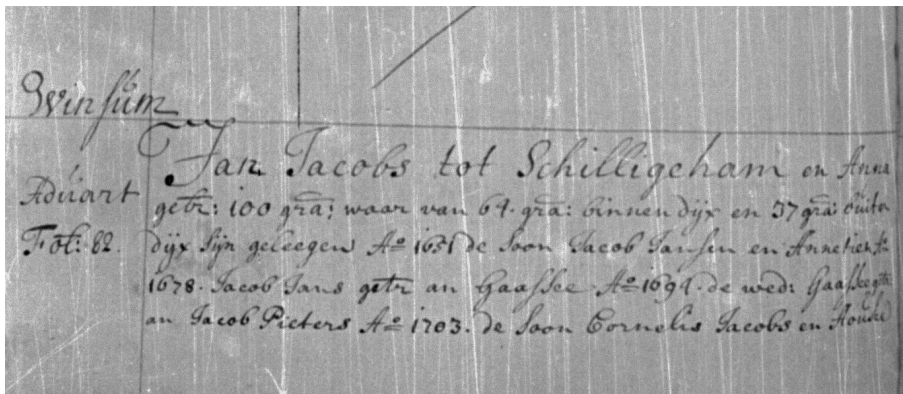 Winsum
Jan Jacobs tot Schilligeham en Anna
Aduart
getr: 100 gra: waar van 64. gra: binnen dijx en 37 gra: buiten
Fol: 82.
dijx sijn geleegen Ao 1631 de Soon Jacob Jansen en Annetien Ao
1678. Jacob Jans getr an Gaassee Ao 1694. de wed: Gaassee getr
an Jacob Pieters Ao 1703. de Soon Cornelis Jacobs en Houke